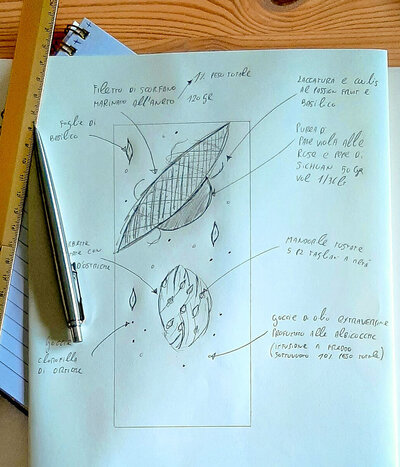 FILETTO DI SCORFANO
MARINATO ALL'ANETO 120 GR
1% PESO TOTALE
LACCATURA E COULIS
AL PASSION FRUIT E
BASILICO
FOGLIE DI
BASILICO
PUREA DI
PATE VIOLA ALLE
ROSE E PEPE DI
SICHUAN 50 GR
MANDORLE TOSTATE
5 PZ TAGLIATI A METÀ
CON
D'OSTRICHE
GOCCIE DI OLIO EXTRAVERGINE
PROFUMATO ALLE ALBICOCCHE
(INFUSIONE A FREDDO
SOTTOVUOTO 10% PESO TOTALE)
GOCCIE
CLOROFILLA
DI ORTICHE